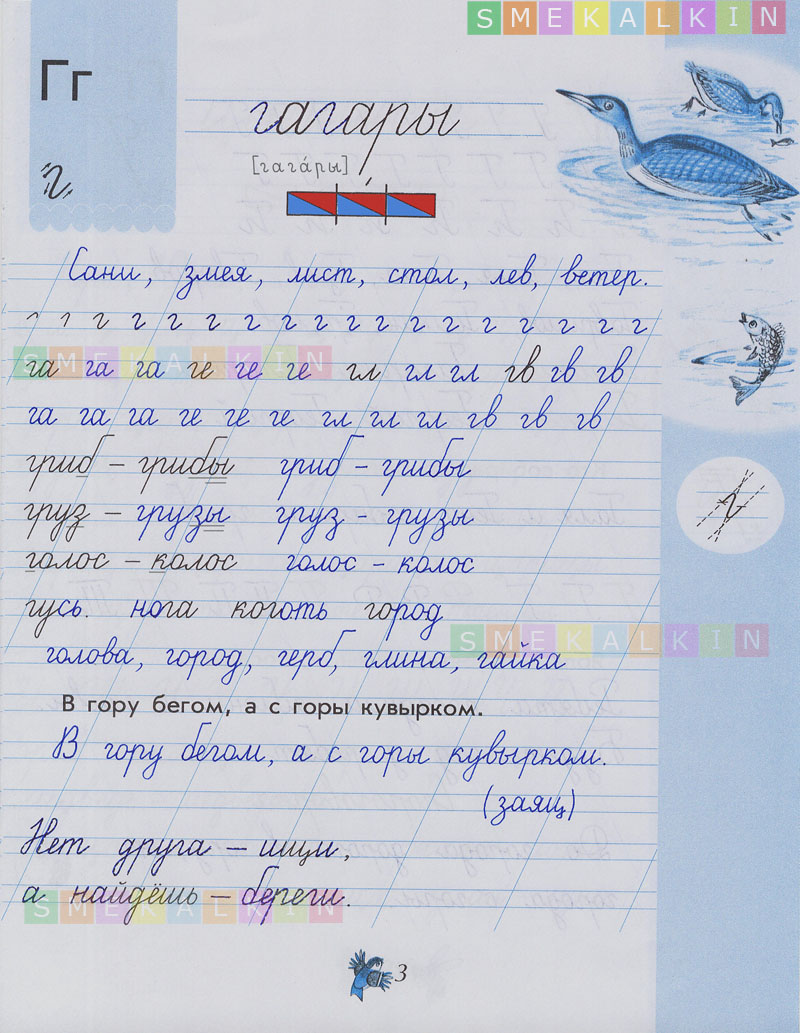 SMEKALKIN
Гг
гагары
г
[гага́ры]
Сани, змея, лист, стол, лев, ветер.
г г г г г г г г г г г г г г г
SMEKALKIN
га га га ге ге ге гл гл гл гв гв гв
га га га ге ге ге гл гл гл гв гв гв
гриб – грибы гриб – грибы
г
груз – грузы груз – грузы
голос – колос голос – колос
гусь. нога коготь город
SMEKALKIN
голова, город, герб, глина, гайка
В гору бегом, а с горы кувырком.
В гору бегом, а с горы кувырком.
(заяц)
Нет друга – ищи,
а найдёшь – береги.
SMEKALKIN
3